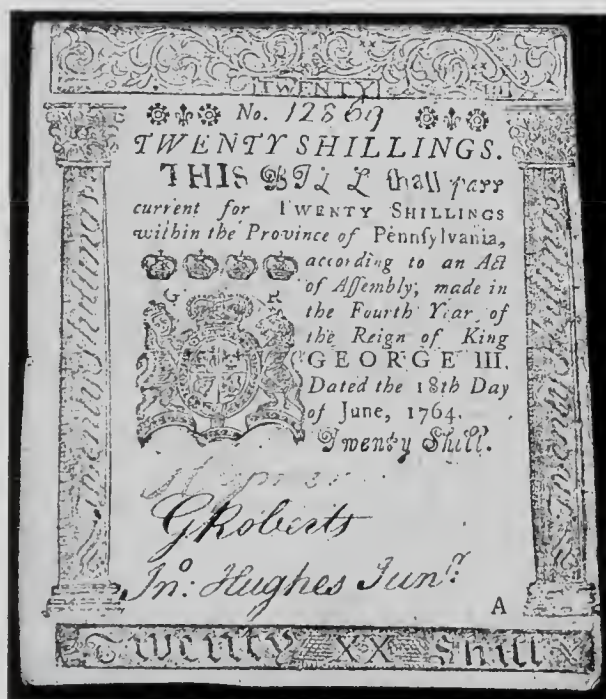 TWENTY
No. 12869
TWENTY SHILLINGS.
THIS BILL ſhall paſs
current for TWENTY SHILLINGS
within the Province of Pennſylvania,
according to an Act
of Aſſembly, made in
the Fourth Year of
the Reign of King
GEORGE III.
Dated the 18th Day
of June, 1764.
Twenty Shill.
G R
GRoberts
Jnº. Hughes Junr.
A
Twenty XX Shill
Twenty Shillings
Twenty Shillings